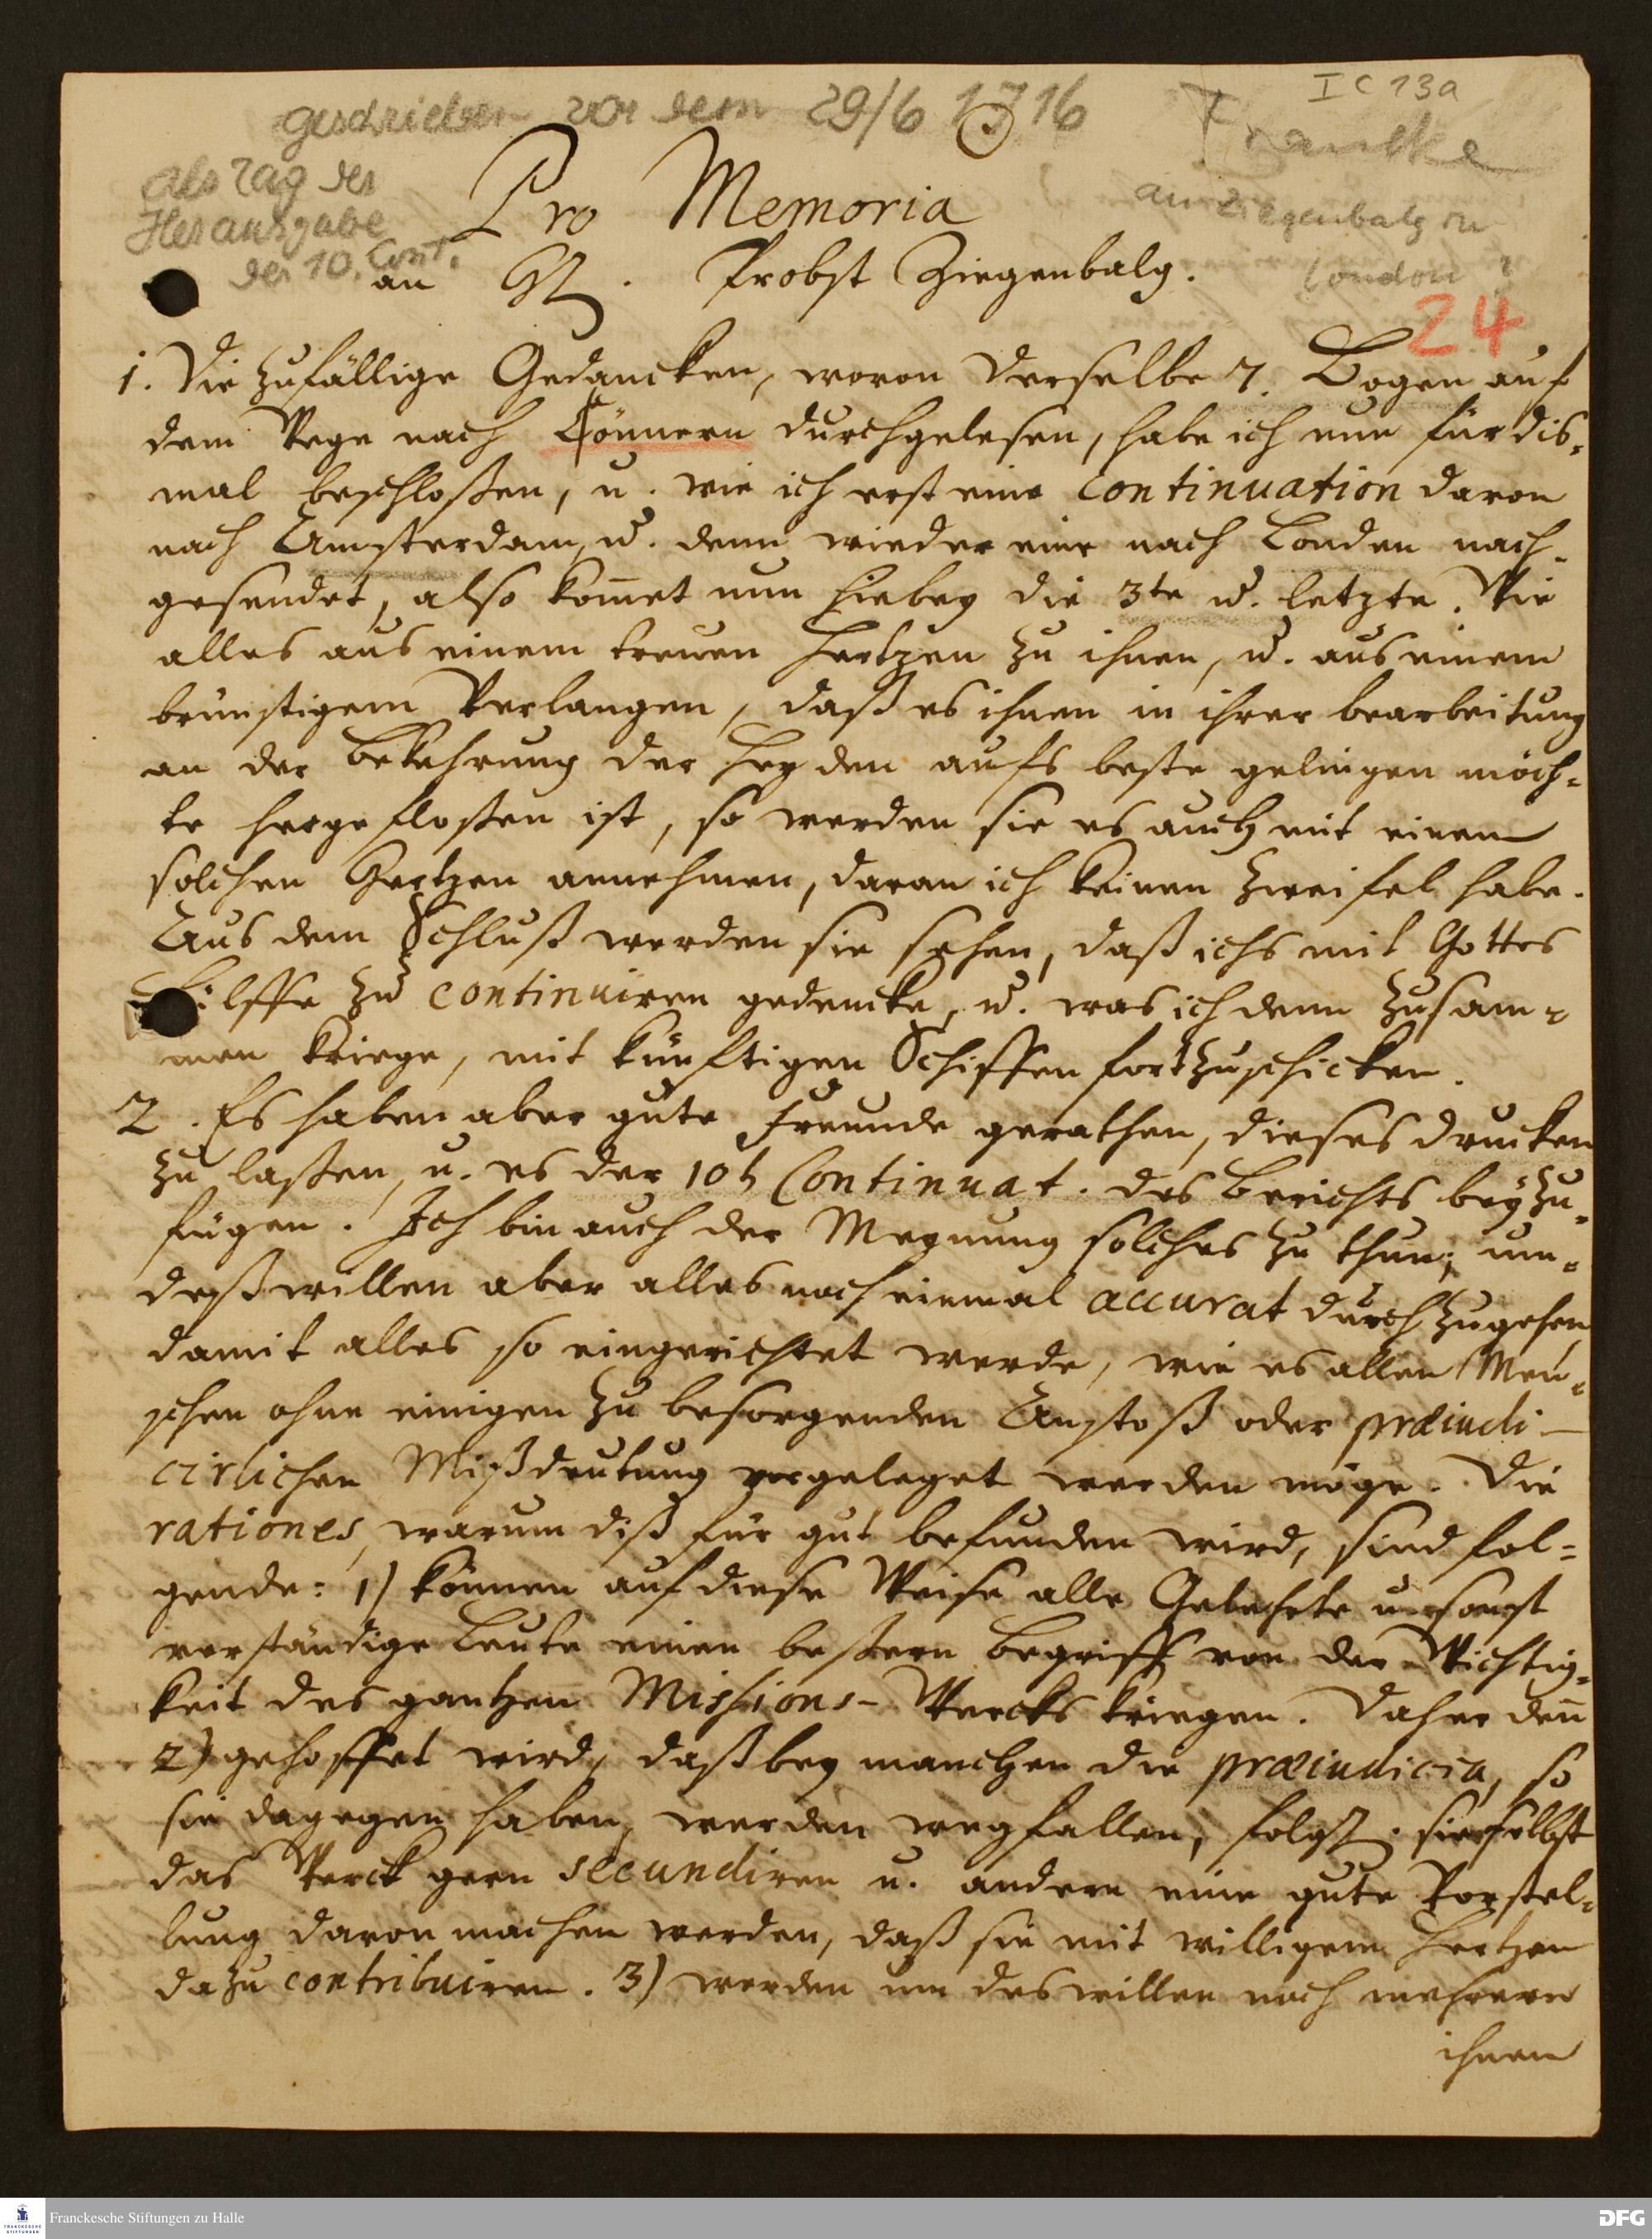 I C 13a
geschrieben vor dem 29/6 1716
Francke
als Tag der
Herausgabe
der 10. Cont.
an Ziegenbalg in
London ?
Pro Memoria
an H. Probst Ziegenbalg.
24
1. Die zufällige Gedancken, wovon derselbe 7. Bogen auf
dem Wege nach Cönnern durchgelesen, habe ich nun für dis-
mal beschloßen, u. wie ich erst eine continuation davon
nach Amsterdam, u. denn wieder eine nach Londen nach-
gesendet, also kom̄et nun hiebey die 3te u. letzte. Wie
alles aus einem treuen Hertzen zu ihnen, u. aus einem
brünstigem Verlangen, daß es ihnen in ihrer bearbeitung
an der bekehrung der Heyden aufs beste gelingen möch-
te hergefloßen ist, so werden sie es auch mit einem
solchen Hertzen annehmen, daran ich keinen Zweifel habe.
Aus dem Schluß werden sie sehen, daß ichs mit Gottes
Hilffe zu continuiren gedencke, u. was ich denn zusam-
men kriege, mit künftigen Schiffen fortzuschicken.
2. Es haben aber gute Freunde gerathen, dieses drucken
zu laßen, u. es der 10t Continuat. des Berichts beyzu-
fügen. Ich bin auch der Meynung solches zu thun; um-
deßwillen aber alles noch einmal accurat durchzugehen
damit alles so eingerichtet werde, wie es allen Men-
schen ohne einigen zu besorgenden Anstoß oder præiudi-
cirlichen Mißdeutung vorgeleget werden möge. Die
rationes, warum diß für gut befunden wird, sind fol-
gende: 1) können auf diese Weise alle Gelehrte u. sonst
verständige Leute einen beßern Begriff von der Wichtig-
keit des gantzen Missions-Wercks kriegen. Daher den̄
2) gehoffet wird, daß bey manchen die præiudicia, so
sie dagegen haben, werden wegfallen, folgl. sie selbst
das Werck gern secundiren u. andern eine gute Vorstel-
lung davon machen werden, daß sie mit willigem Hertzen
dazu contribuiren. 3) werden um deswillen noch mehrere
ihnen
Franckesche Stiftungen zu Halle
FRANCKESCHE STIFTUNGEN
DFG